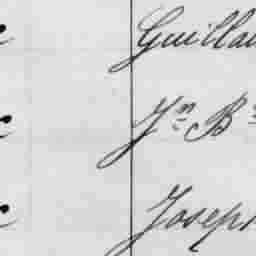 Guillau
Jn B
Joseph